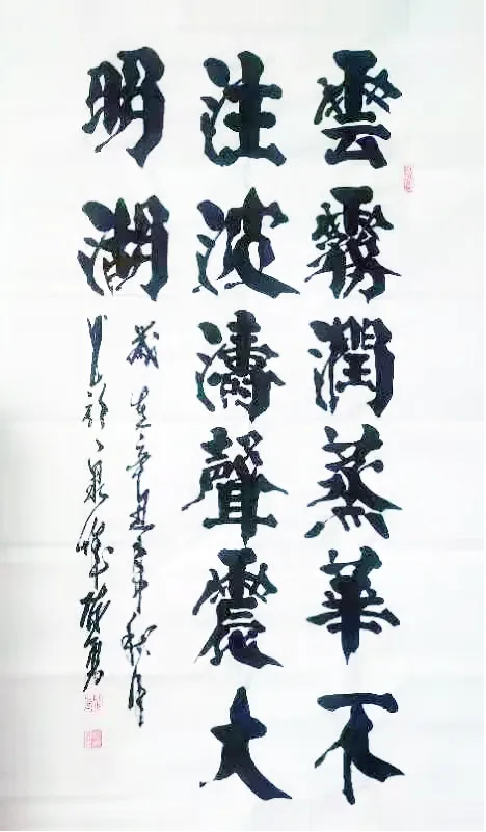 雲霧潤蒸華不
注波濤聲震大
明湖
歲在辛丑年秋月